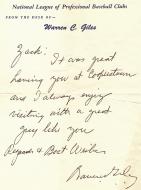 National League of Professional Baseball Clubs
FROM THE DESK OF—
Warren C. Giles
Zack:
It was great
having you at Cooperstown
and I always enjoy
visiting with a good
guy like you
Regards & Best Wishes
Warren Giles